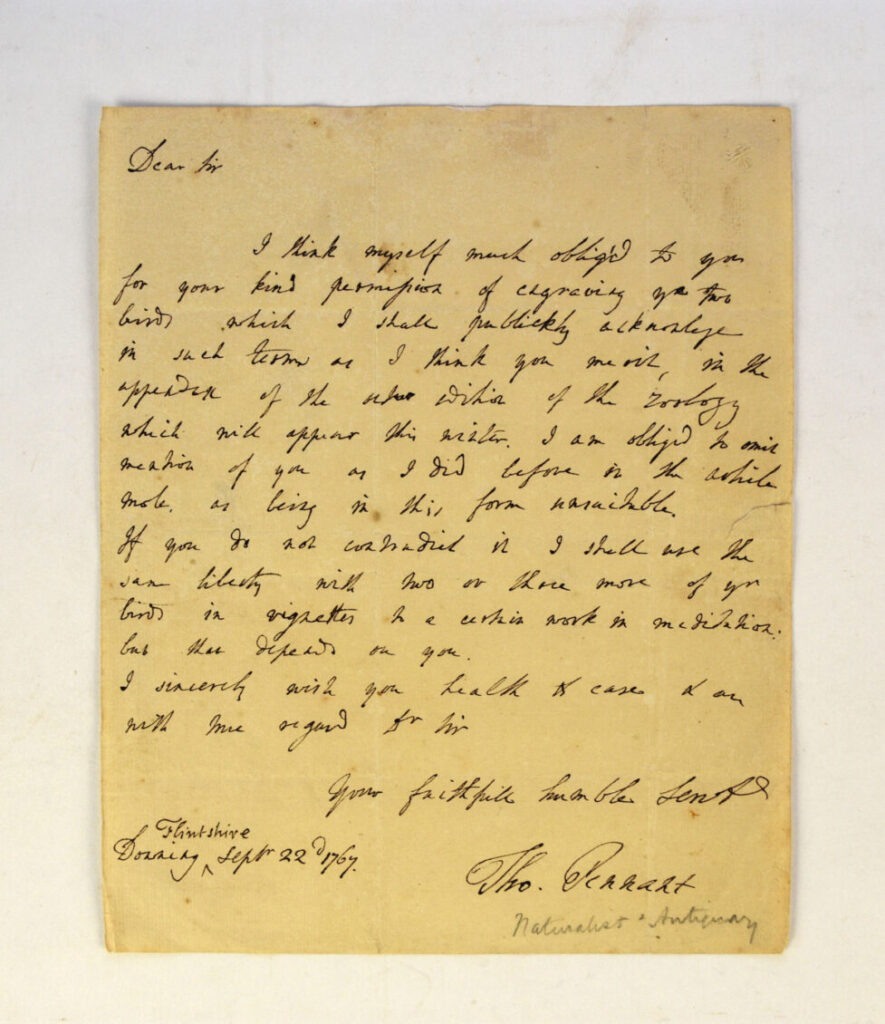 Dear Sir
I think myself much oblig'd to you
for your kind permission of engraving yr two
birds which I shall publickly acknowlege
in such terms as I think you merit, in the
appendix of the edition of the Zoology
which will appear this winter. I am oblig'd to omit
mention of you as I did before in the article
mole, as being in this form unsuitable.
If you do not contradict it I shall use the
same liberty with two or three more of yr
birds in vignettes to a certain work in meditation:
but that depends on you.
I sincerely wish you health & ease & am
with true regard Dr Sir
Your faithfull humble Servt
Flintshire
Downing ‸ Septr 22d 1767.
Tho. Pennant
Naturalist & Antiquary